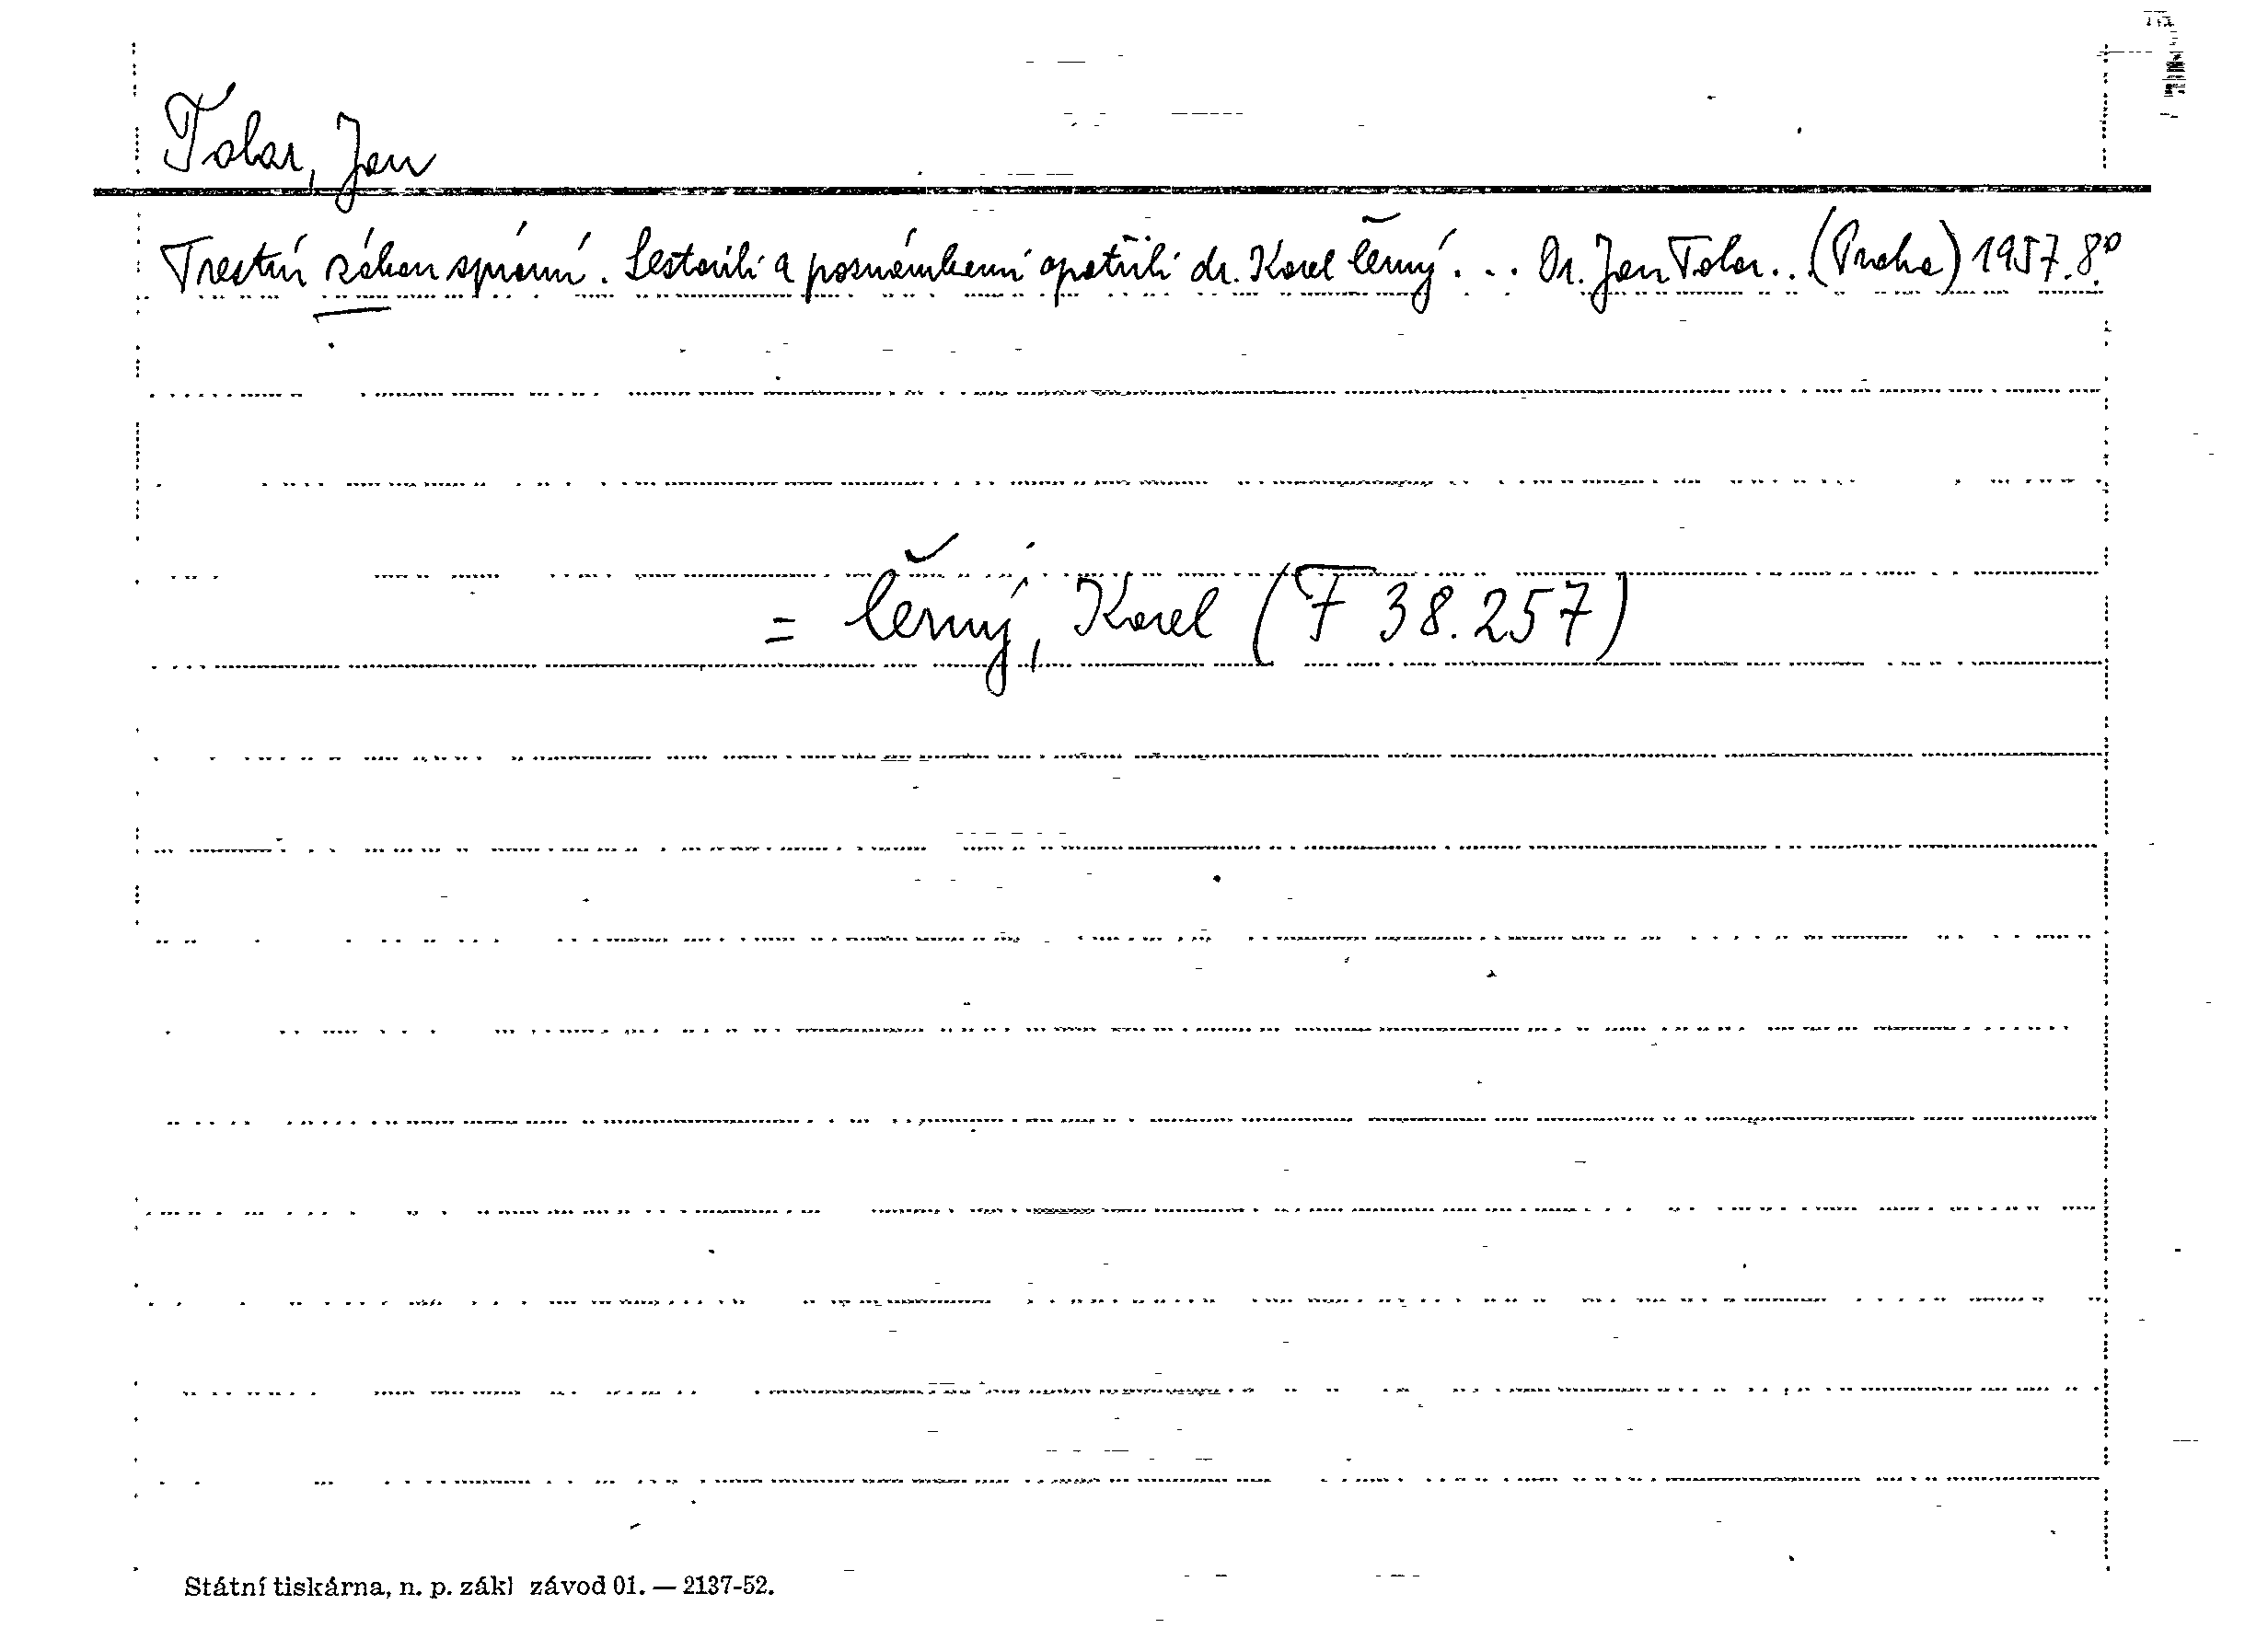 Tolar, Jan
Trestní zákon správní. Sestavili a poznámkami opatřili dr. Karel Černý... Dr. Jan Tolar.. (Praha) 1957. 8°
= Černý, Karel (F 38.257)
Státní tiskárna, n. p. zákl závod 01. — 2137-52.